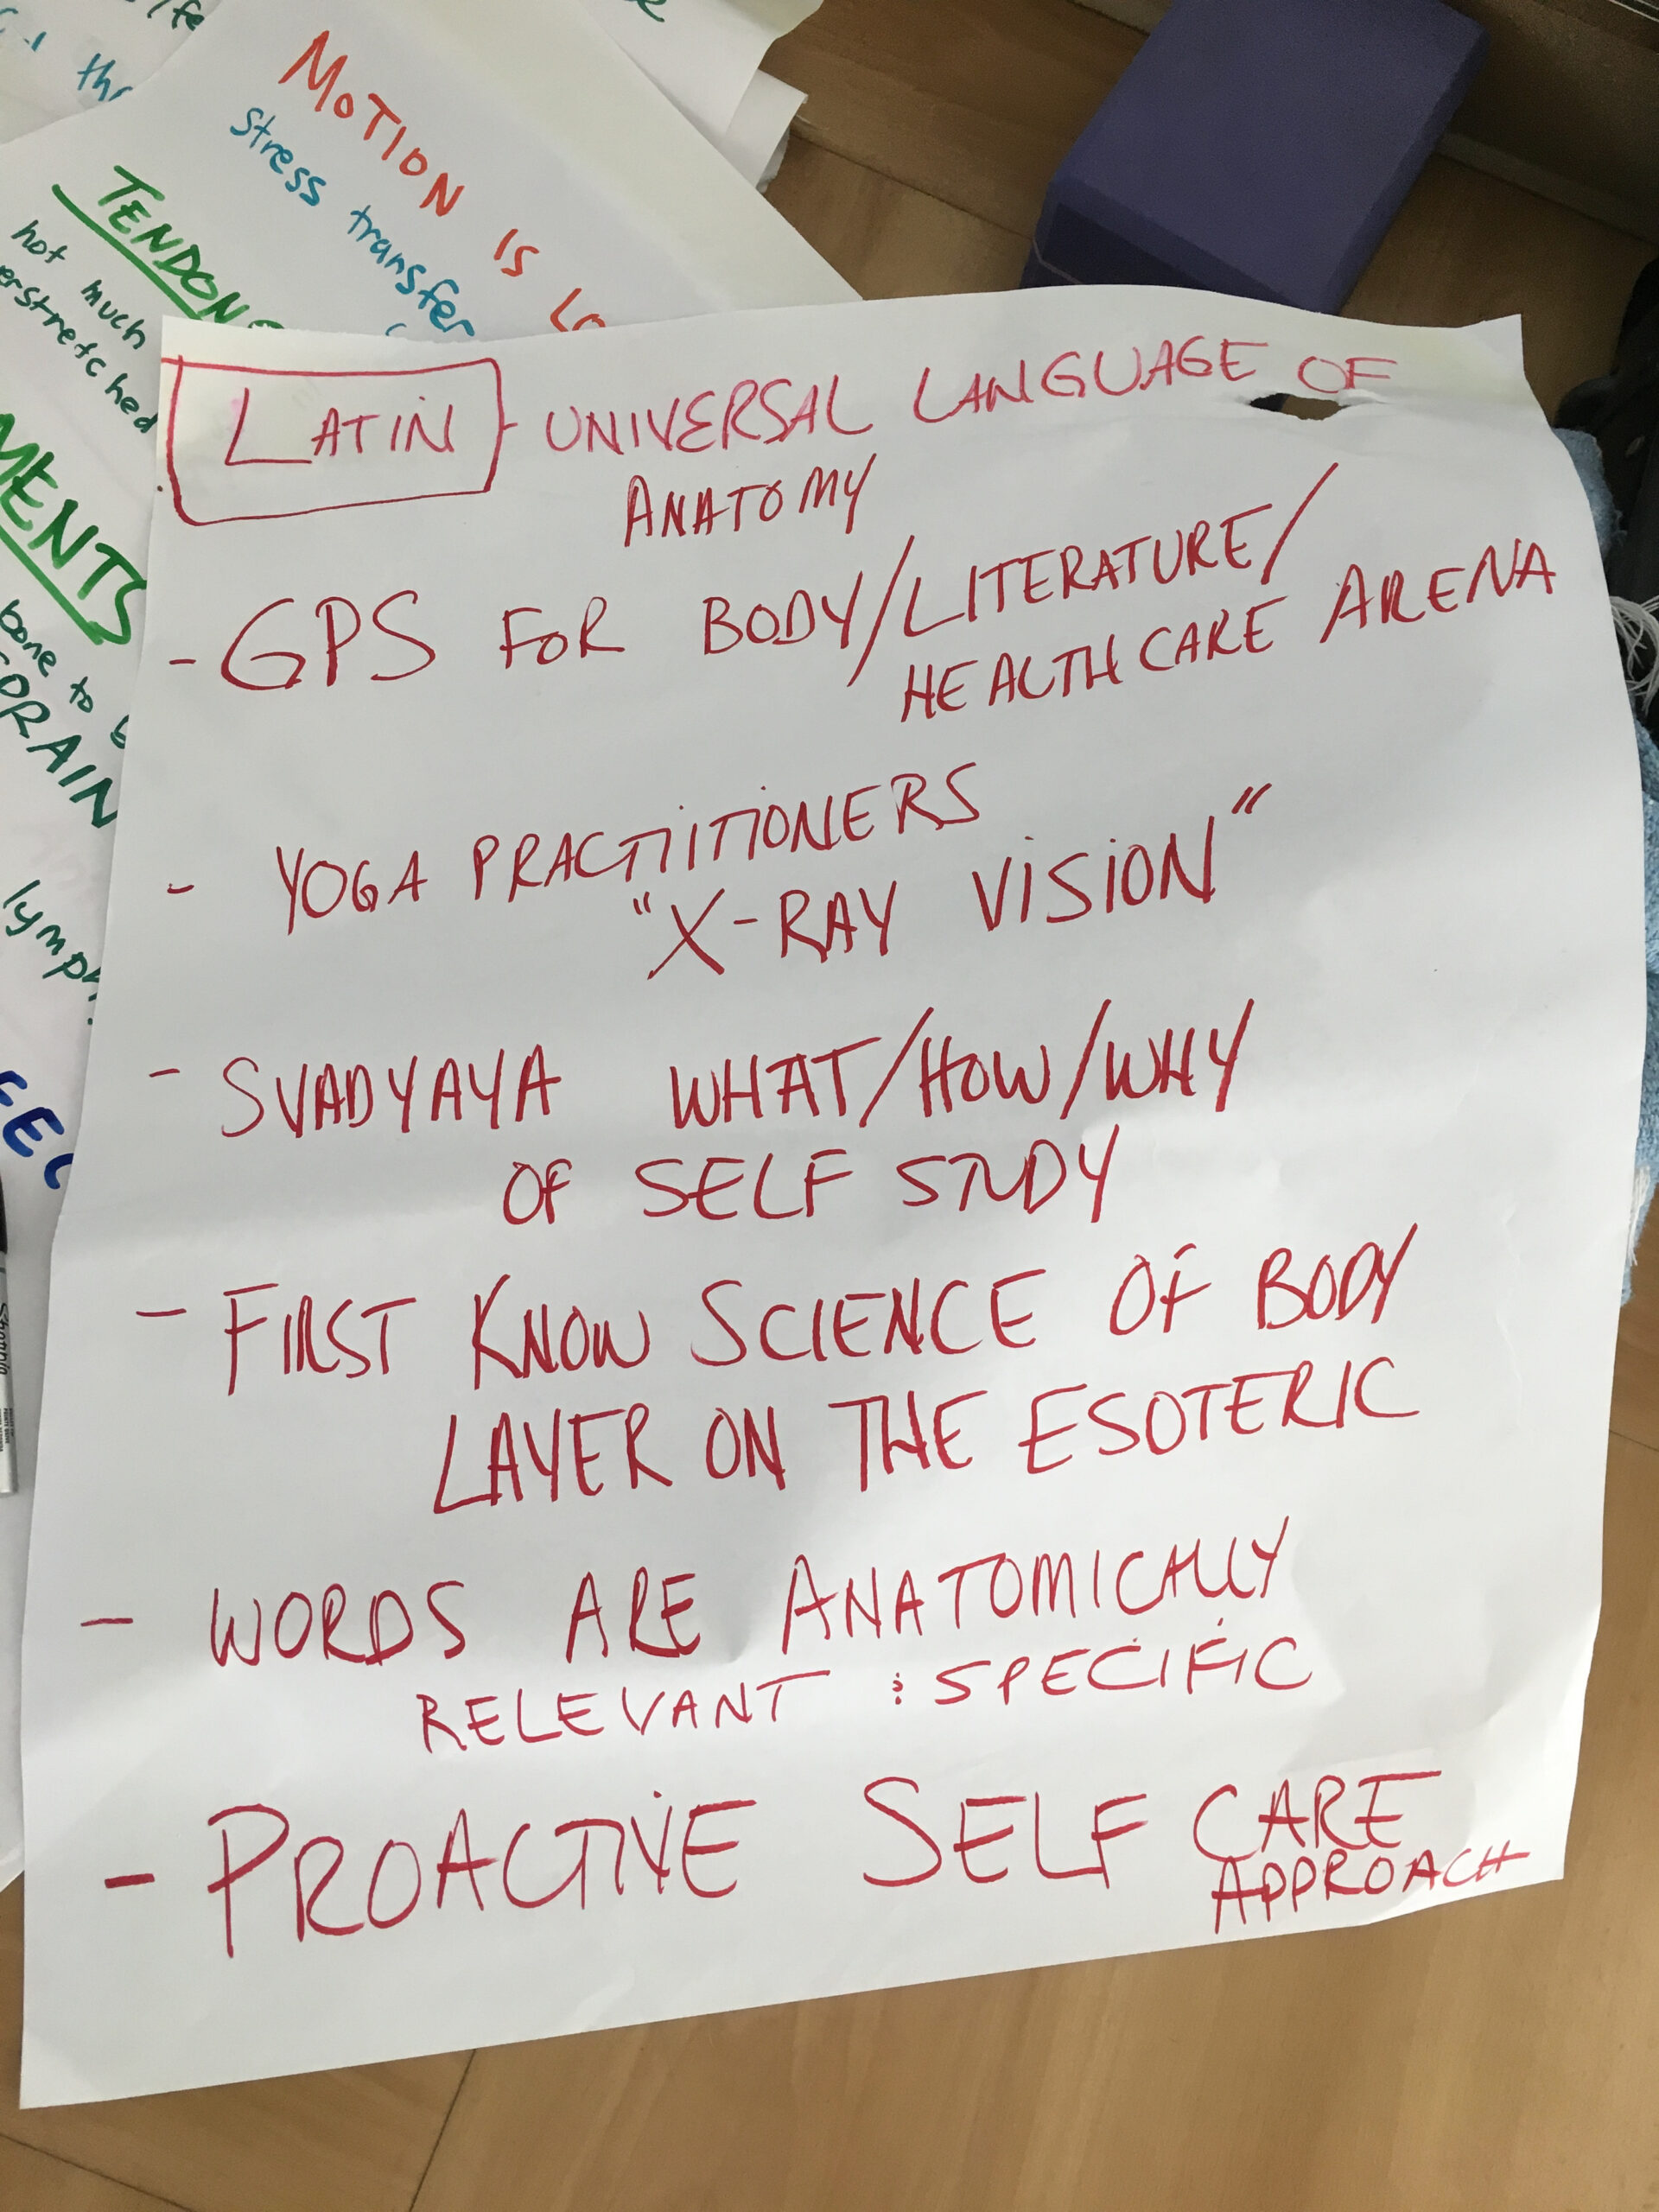 MOTION IS
stress transfer
TENDON
not much
erstretched
MENTS
bone to
lymph
LATIN - UNIVERSAL LANGUAGE OF
ANATOMY
- GPS FOR BODY/LITERATURE/
HEALTHCARE ARENA
- YOGA PRACTIITIONERS
"X-RAY VISION"
- SVADYAYA WHAT/HOW/WHY
OF SELF STUDY
- FIRST KNOW SCIENCE OF BODY
LAYER ON THE ESOTERIC
- WORDS ARE ANATOMICALLY
RELEVANT & SPECIFIC
- PROACTIVE SELF CARE
APPROACH